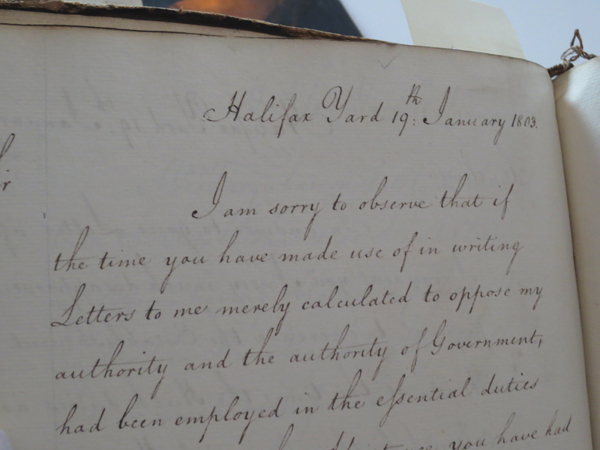 Halifax Yard 19th: January 1803.
I am sorry to observe that if
the time you have made use of in writing
Letters to me merely calculated to oppose my
authority and the authority of Government,
had been employed in the eſsential duties
you have had